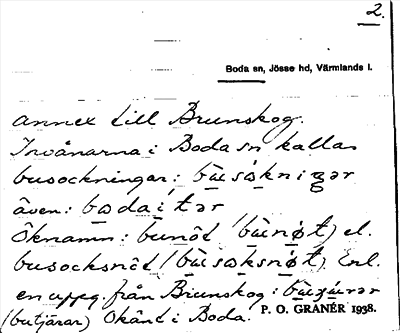 2.
Boda sn, Jösse hd, Värmlands l.
annex till Brunskog.
Invånarna i Boda sn kallas
busockningar: bùsòkniŋar
även: bodaìtər
Öknamn: bunöt (bùnø̀t) el.
busocksnöt (bùsɔksnø̀t) Enl.
en uppg. från Brunskog:
(butjärar) Okänt i Boda. P. O. GRANÉR 1938.